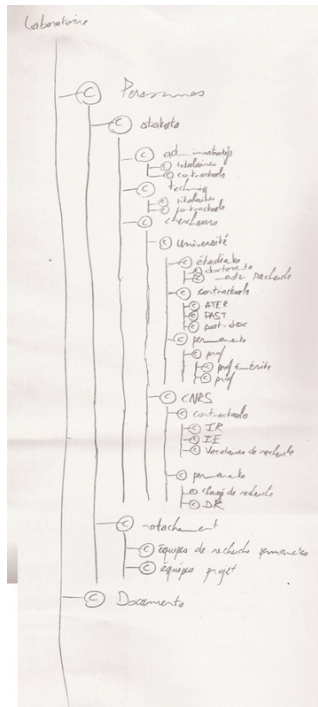 Laboratoire
© Personnes
© statuts
© administratifs
© titulaires
© contractuels
© techniq
© titulaires
© contractuels
© chercheurs
© Université
© étudiants
© doctorants
© recherche
© contractuels
© ATER
© PAST
© post-doc
© permanents
© prof
© prof émérite
© prof
© CNRS
© contractuels
© IR
© IE
© Vacataires de recherche
© permanents
© chargé de recherche
© DR
© rattachement
© équipes de recherche permanentes
© équipes projet
© Documents